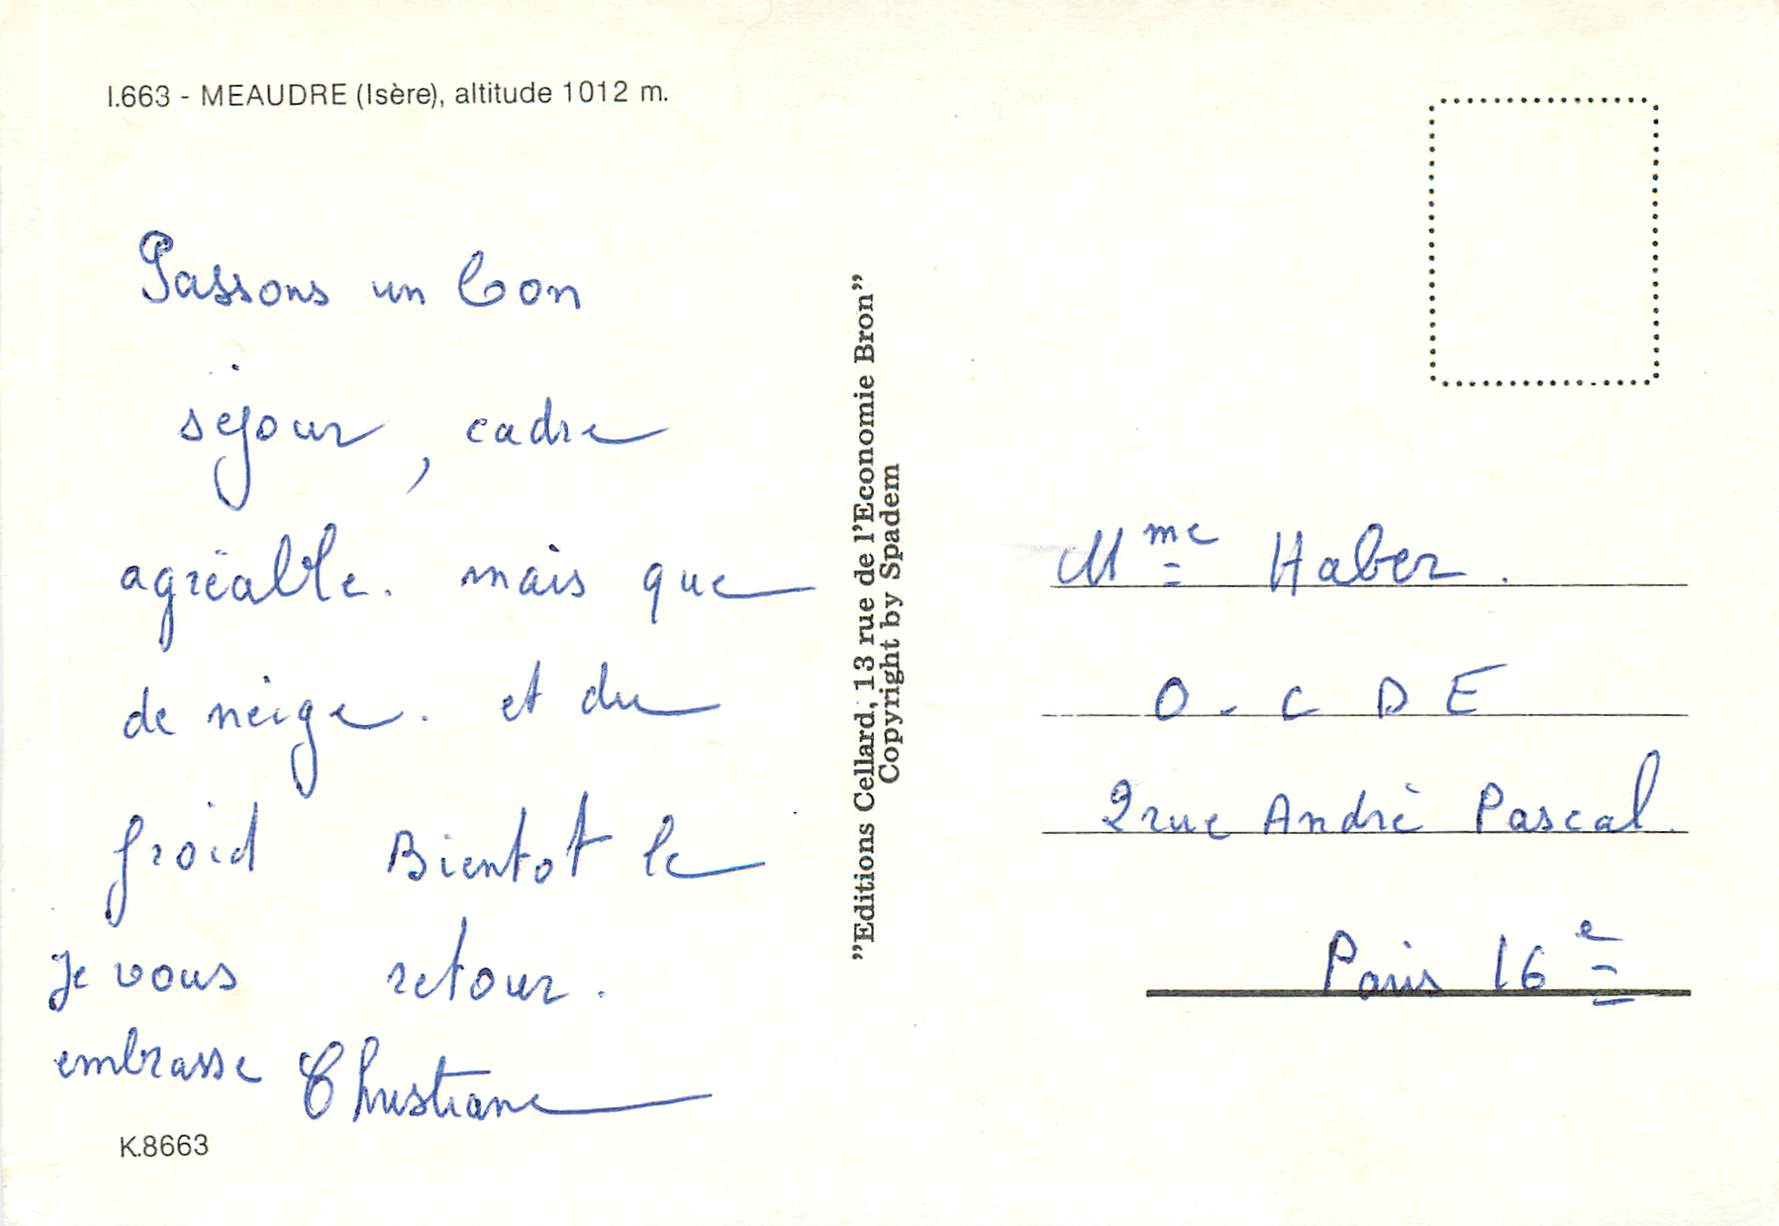 I.663 - MEAUDRE (Isère), altitude 1012 m.
Passons un bon
séjour, cadre
agréable. mais que
de neige. et du
froid Bientot le
retour.
Je vous
embrasse Christiane
K.8663
"Editions Cellard, 13 rue de l'Economie Bron"
Copyright by Spadem
Mme Haber.
O.CDE
2 rue André Pascal.
Paris 16e